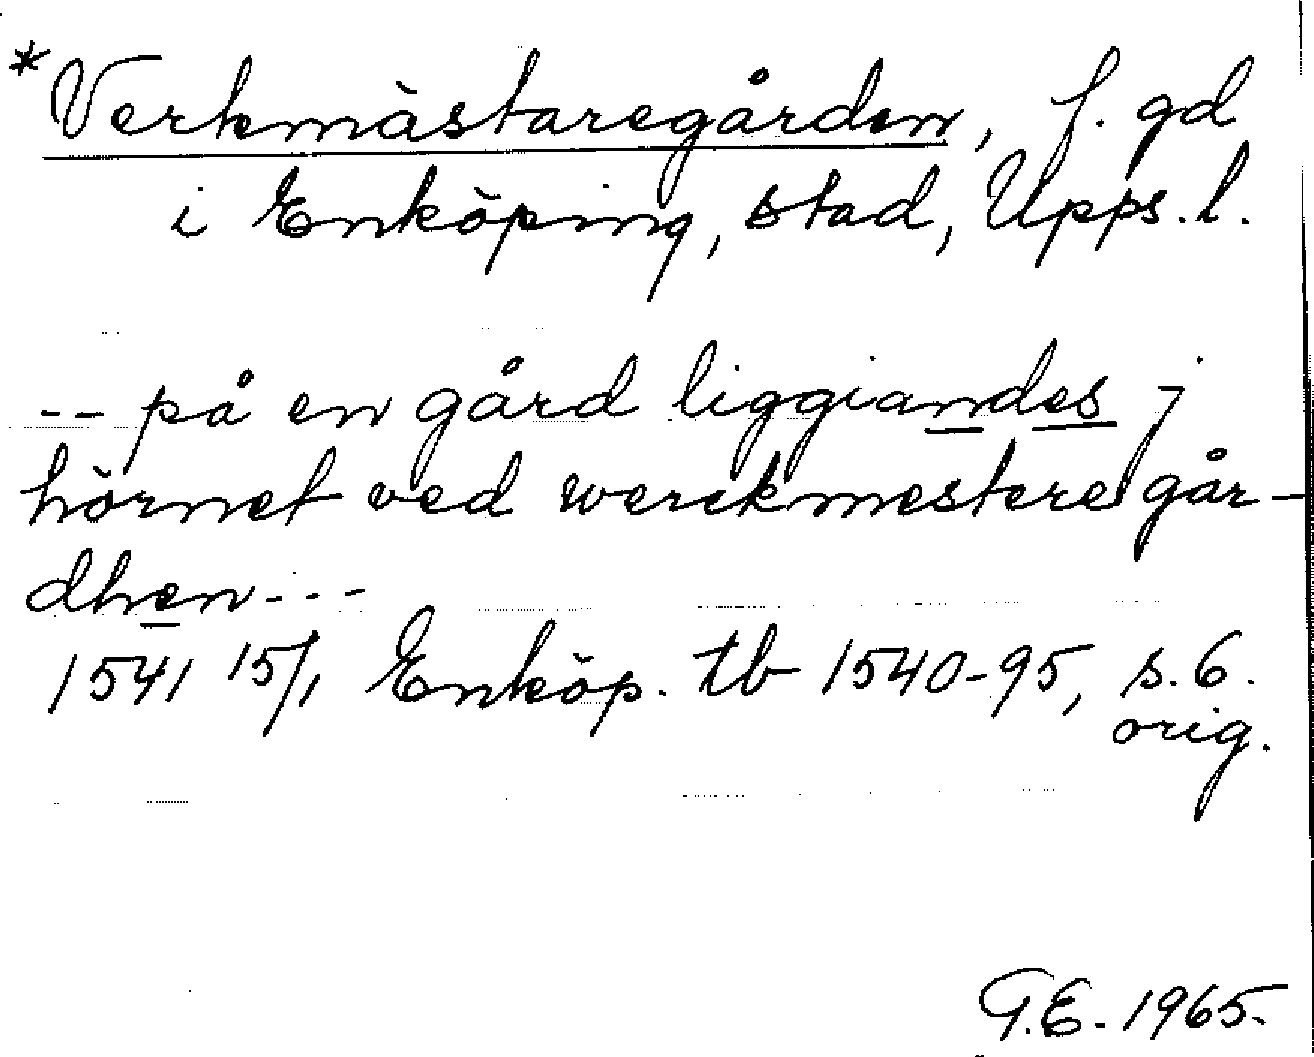 *Verkmästaregården, f. gd
i Enköping, stad, Upps. l.
-- på en gård liggiandes j
hörnet ved werckmestere går-
dhen---
1541 15/1 Enköp. tb 1540-95, s. 6.
orig.
G.E. 1965.